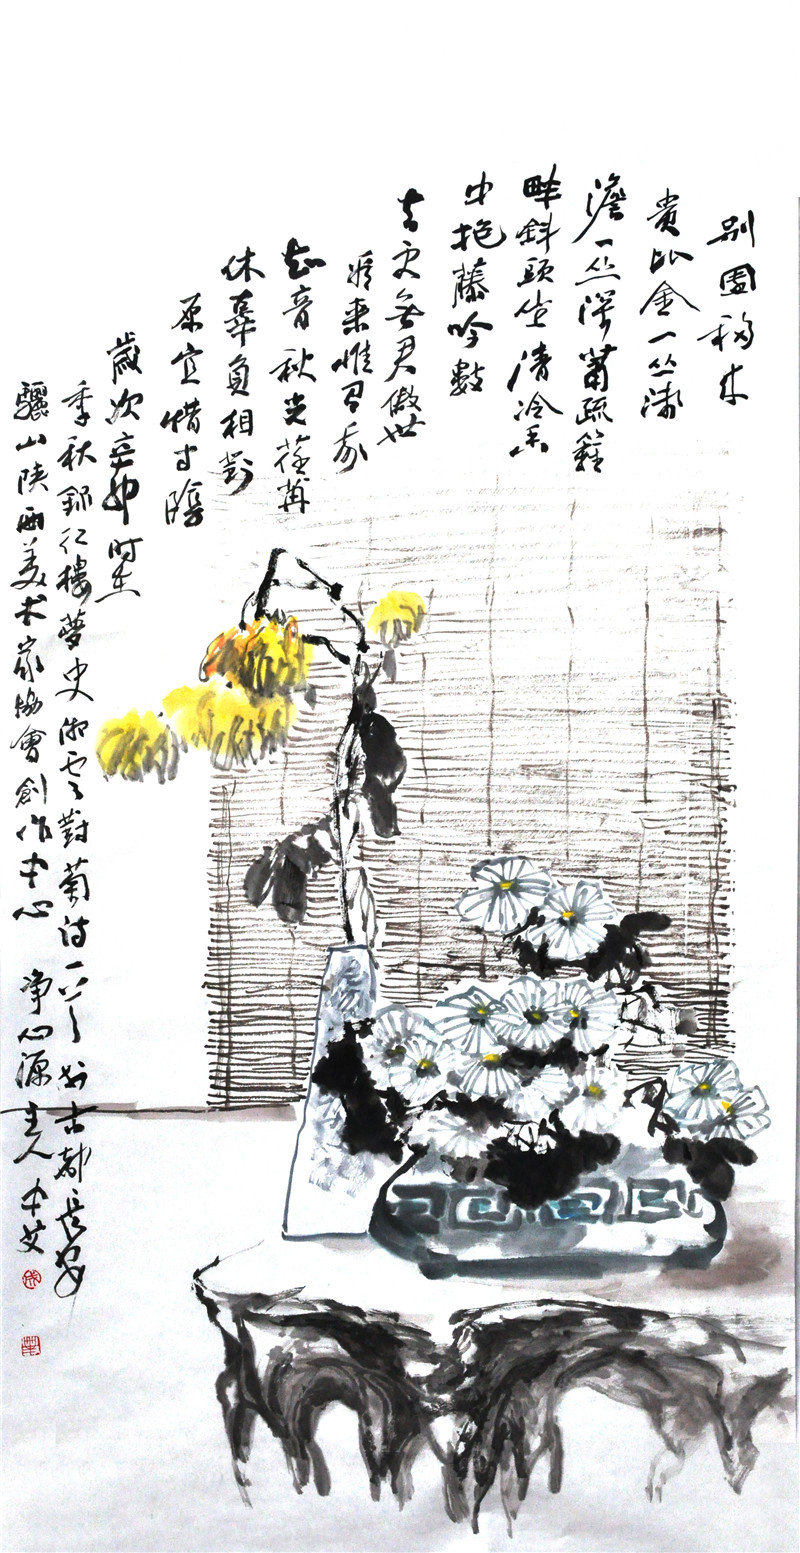 别圃移来
貴比金一丛淺
澹一丛深蕭疏籬
畔斜頭坐清冷香
中抱藤吟數
去更無君傲世
看來惟有我
知音秋光荏苒
休辜負相對
原宜惜寸陰
歲次辛卯时在
季秋錄紅樓夢史湘雲對菊诗一首於古都長安
驪山陕西美术家協會創作中心 净心源主人中艾